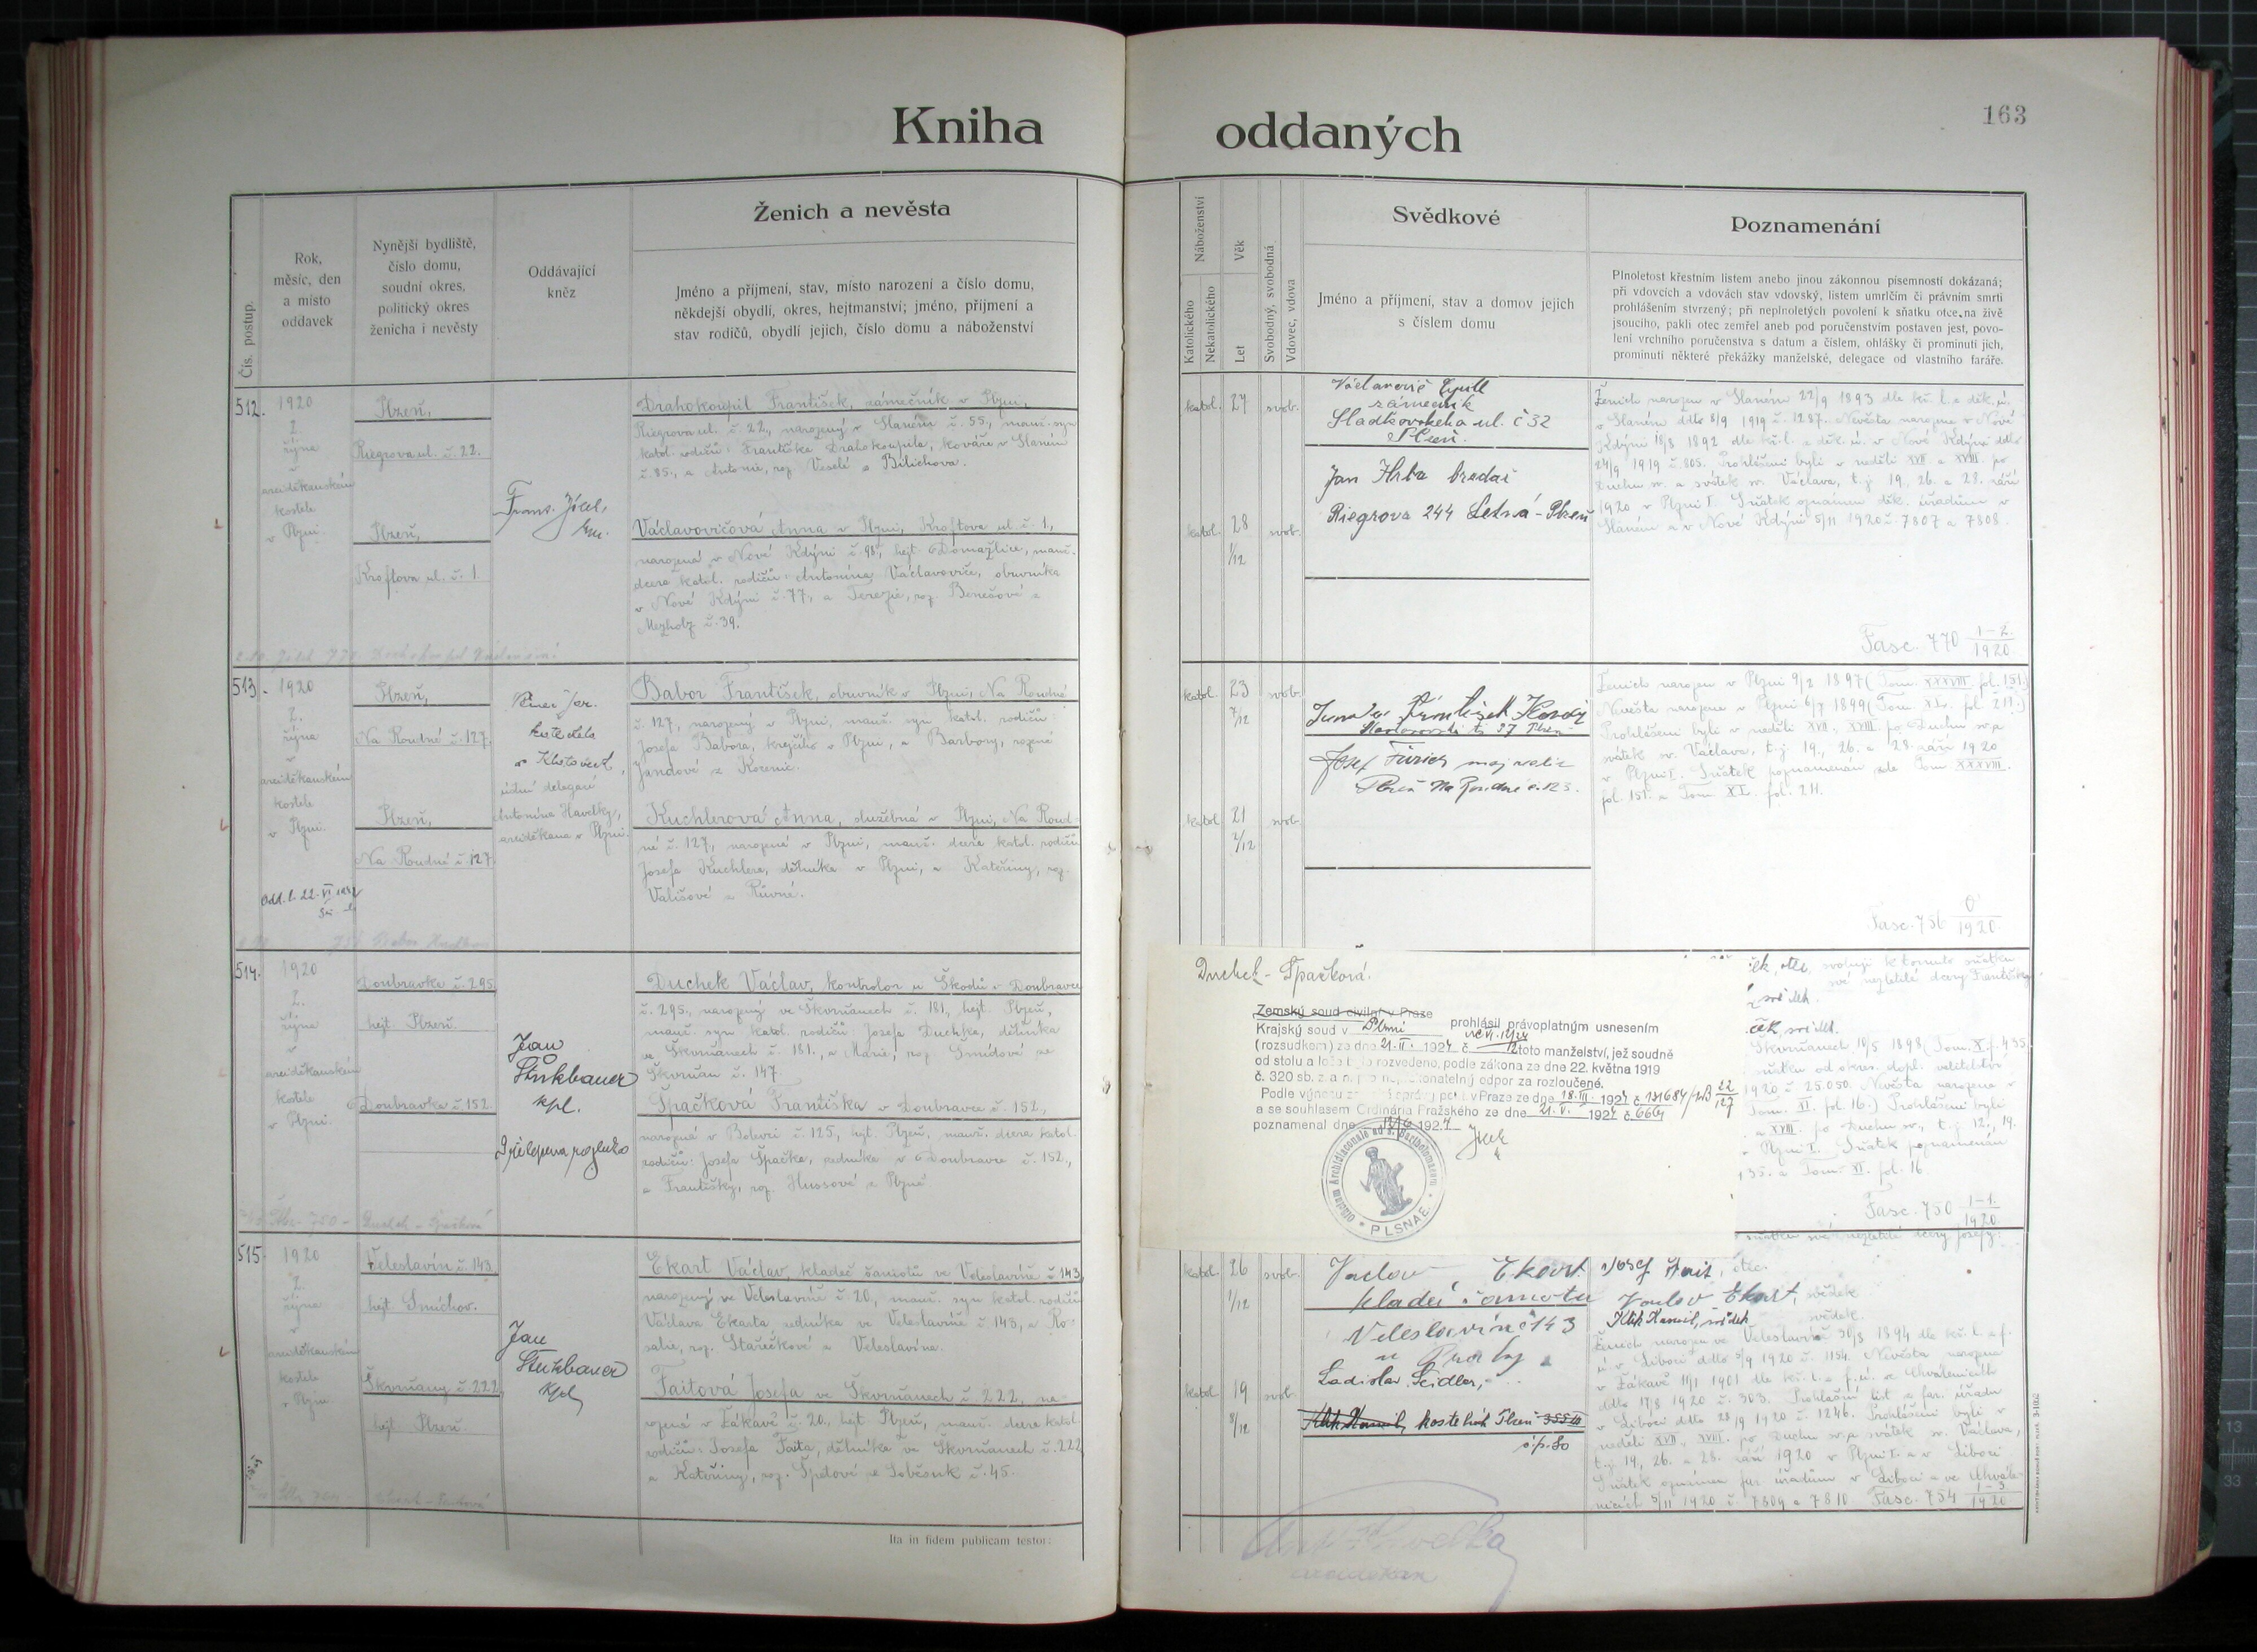 Kniha
oddaných
163
Čís. postup.
Rok,
měsíc, den
a místo
oddavek
Nynější bydliště,
číslo domu,
soudní okres,
politický okres
ženicha i nevěsty
Oddávající
kněz
Ženich a nevěsta
Jméno a příjmení, stav, místo narození a číslo domu,
někdejší obydlí, okres, hejtmanství; jméno, příjmení a
stav rodičů, obydlí jejich, číslo domu a náboženství
Náboženství
Katolického
Nekatolického
Věk
Let
Svobodný, svobodná
Vdovec, vdova
Svědkové
Jméno a příjmení, stav a domov jejich
s číslem domu
Poznamenání
Plnoletost křestním listem anebo jinou zákonnou písemností dokázaná;
při vdovcích a vdovách stav vdovský, listem úmrtčím či právním smrti
prohlášením stvrzený; při neplnoletých povolení k sňatku otce, na živě
jsoucího, pakli otec zemřel aneb pod poručenstvím postaven jest, povo-
lení vrchního poručenstva s datum a číslem, ohlášky či prominutí jich,
prominutí některé překážky manželské, delegace od vlastního faráře.
512.
1920
2.
října
v
arciděkanském
kostele
v Plzni.
Plzeň,
Riegrova ul. č. 22.
Plzeň,
Kroftova ul. č. 1.
Drahokoupil František, zámečník v Plzni,
Riegrova ul. č. 22., narozený v Slaném č. 55., manž. syn
katol. rodičů: Františka Drahokoupila, kováře v Slaném
č. 85., a Antonie, roz. Veselé z Bílichova.
Václavovičová Anna v Plzni, Kroftova ul. č. 1.,
narozená v Nové Kdýni č. 98, hejt. Domažlice, manž.
dcera katol. rodičů: Antonína Václavoviče, obuvníka
v Nové Kdýni č. 77, a Terezie, roz. Benešové z
Mezholz č. 39.
katol. 27 svob.
katol. 28 1/12 svob.
Václavovič
zámečník
Sladkovského ul. č 32
Plzeň.
Jan Hrba
Riegrova 244 Letná - Plzeň
Ženich narozen v Slaném 22/9 1893 dle kř. l. z děk. ú.
v Slaném ddto 8/9 1919 č. 1287. Nevěsta narozena v Nové
Kdýni 18/8 1892 dle kř. l. z děk. ú. v Nové Kdýni ddto
24/9 1919 č. 805. Prohlášeni byli v neděli XVII. a XVIII. po
Duchu sv. a svátek sv. Václava, t. j. 19., 26. a 28. září
1920 v Plzni I. Sňatek oznámen děk. úřadům v
Slaném a v Nové Kdýni 5/11 1920 č. 7807 a 7808.
Fasc. 770 1-2/1920
513.
1920
2.
října
v
arciděkanském
kostele
v Plzni.
Plzeň,
Na Roudné č. 127.
Plzeň,
Na Roudné č. 127
katecheta
v
delegací
Antonína Havelky,
arciděkana v Plzni.
Babor František, obuvník v Plzni, Na Roudné
č. 127, narozený v Plzni, manž. syn katol. rodičů:
Josefa Babora, krejčího v Plzni, a Barbory, rozené
Jandové z Korenic.
Kuchlerová Anna, služebná v Plzni, Na Roud-
né č. 127, narozená v Plzni, manž. dcera katol. rodičů
Josefa Kuchlera, dělníka v Plzni, a Kateřiny, roz.
Vališové z
katol. 23 7/12 svob.
katol. 21 2/12 svob.
František
Josef
Plzeň Na Roudné č. 123.
Ženich narozen v Plzni 9/2 1897 (Tom. XXXVIII. fol. 151.)
Nevěsta narozena v Plzni 6/7 1899 (Tom. XL. fol. 211.)
Prohlášeni byli v neděli XVII., XVIII. po Duchu sv. a
svátek sv. Václava, t. j. 19., 26. a 28. září 1920
v Plzni I. Sňatek poznamenán zde Tom. XXXVIII.
fol. 151. a Tom. XL. fol. 211.
Fasc. 756 0/1920.
514.
1920
2.
října
v
arciděkanském
kostele
v Plzni.
Doubravka č. 295
hejt. Plzeň.
Doubravka č. 152.
Jan
kpl.
Duchek Václav, kontrolor u Škodů v Doubravce
č. 295., narozený ve Škvrňanech č. 181, hejt. Plzeň,
manž. syn katol. rodičů: Josefa Duchka, dělníka
ve Škvrňanech č. 181., a Marie, roz. Šmídové ze
Škvrňan č. 147.
Špačková Františka v Doubravce č. 152.,
narozená v Bolevci č. 125, hejt. Plzeň, manž. dcera katol.
rodičů: Josefa Špačka, zedníka v Doubravce č. 152.,
a Františky, roz. Hussové z Plzně.
Duchek - Špačková.
Zemský soud civilní v Praze
Krajský soud v Plzni prohlásil právoplatným usnesením
(rozsudkem) ze dne 21. II. 1924 č. toto manželství, jež soudně
od stolu a lože bylo rozvedeno, podle zákona ze dne 22. května 1919
č. 320 sb. z. a n. pro nepřekonatelný odpor za rozloučené.
Podle výnosu v Praze ze dne 18. III. 1924 č. 131684
a se souhlasem Ordinária Pražského ze dne 21. V. 1924 č. 6664
poznamenal dne 192.4
PLSNAE.
svoluji k tomuto sňatku
své nezletilé dcery Františky.
svědek.
Škvrňanech 10/5 1898 (Tom. X. f. 435
1920 č. 25.050. Nevěsta narozena v
Tom. XI. fol. 16.) Prohlášeni byli
a XVIII. po Duchu sv., t. j. 12., 19.
v Plzni I. Sňatek poznamenán
435. a Tom. XI. fol. 16.
Fasc. 750 1-1./1920.
515.
1920
2.
října
v
arciděkanském
kostele
v Plzni
Veleslavín č. 143.
hejt. Smíchov.
Škvrňany č. 222.
hejt. Plzeň.
Jan
kpl
Ekart Václav, kladeč šamotů ve Veleslavíně č 143
narozený ve Veleslavíně č. 20, manž. syn katol. rodičů
Václava Ekarta zedníka ve Veleslavíně č. 143, a Ro-
salie, roz. Stařečkové z Veleslavína.
Faitová Josefa ve Škvrňanech č. 222, na-
rozená v Žákavě č. 20., hejt. Plzeň, manž. dcera katol.
rodičů: Josefa Faita, dělníka ve Škvrňanech č. 222
a Kateřiny, roz. Špetové ze Soběsuk č. 45.
katol. 26 1/12 svob.
katol. 19 8/12 svob.
Václav Ekart
kladeč šamotu
Veleslavín č 143
u Prahy
Ladislav Seidler,
kostelník Plzeň
č. p. 80
Josef Fait, otec.
Václav Ekart, svědek
svědek.
Ženich narozen ve Veleslavíně 30/8 1894 dle kř. l. z f.
ú. v Liboci ddto 5/9 1920 č. 1154. Nevěsta narozená
v Žákavě 11/1 1901 dle kř. l. z f. ú. ve Chválenicích
ddto 17/8 1920 č. 303. Prohlašní list z far. úřadu
v Liboci ddto 28/9 1920 č. 1246. Prohlášeni byli v
neděli XVII., XVIII. po Duchu sv. a svátek sv. Václava,
t. j. 19., 26. a 28. září 1920 v Plzni I. a v Liboci
Sňatek oznámen far. úřadům v Liboci a ve Chvále-
nicích 5/11 1920 č. 7809 a 7810. Fasc. 754 1-3/1920
Ita in fidem publicam testor:
Ant. Havelka
arciděkan